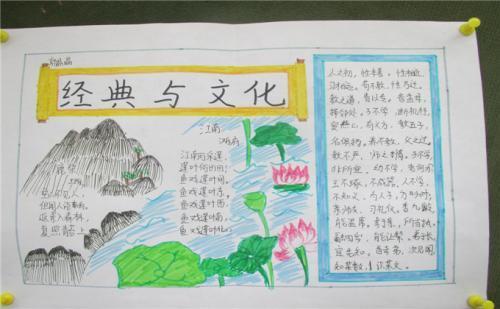 经典与文化
但闻人语响，
返景入森林，
复照青苔上
江南
江南可采莲，
莲叶何田田，
鱼戏莲叶间。
鱼戏莲叶东，
鱼戏莲叶西，
鱼戏莲叶南，
鱼戏莲叶北。
人之初，性本善。性相近，
习相远。苟不教，性乃迁。
教之道，贵以专。昔孟母，
择邻处。子不学，断机杼。
窦燕山，有义方。教五子，
名俱扬。养不教，父之过。
教不严，师之惰。子不学，
非所宜。幼不学，老何为。
玉不琢，不成器。人不学，
不知义。为人子，方少时。
亲师友，习礼仪。香九龄，
能温席。孝于亲，所当执。
融四岁，能让梨。弟于长，
宜先知。首孝弟，次见闻。
知某数，识某文。